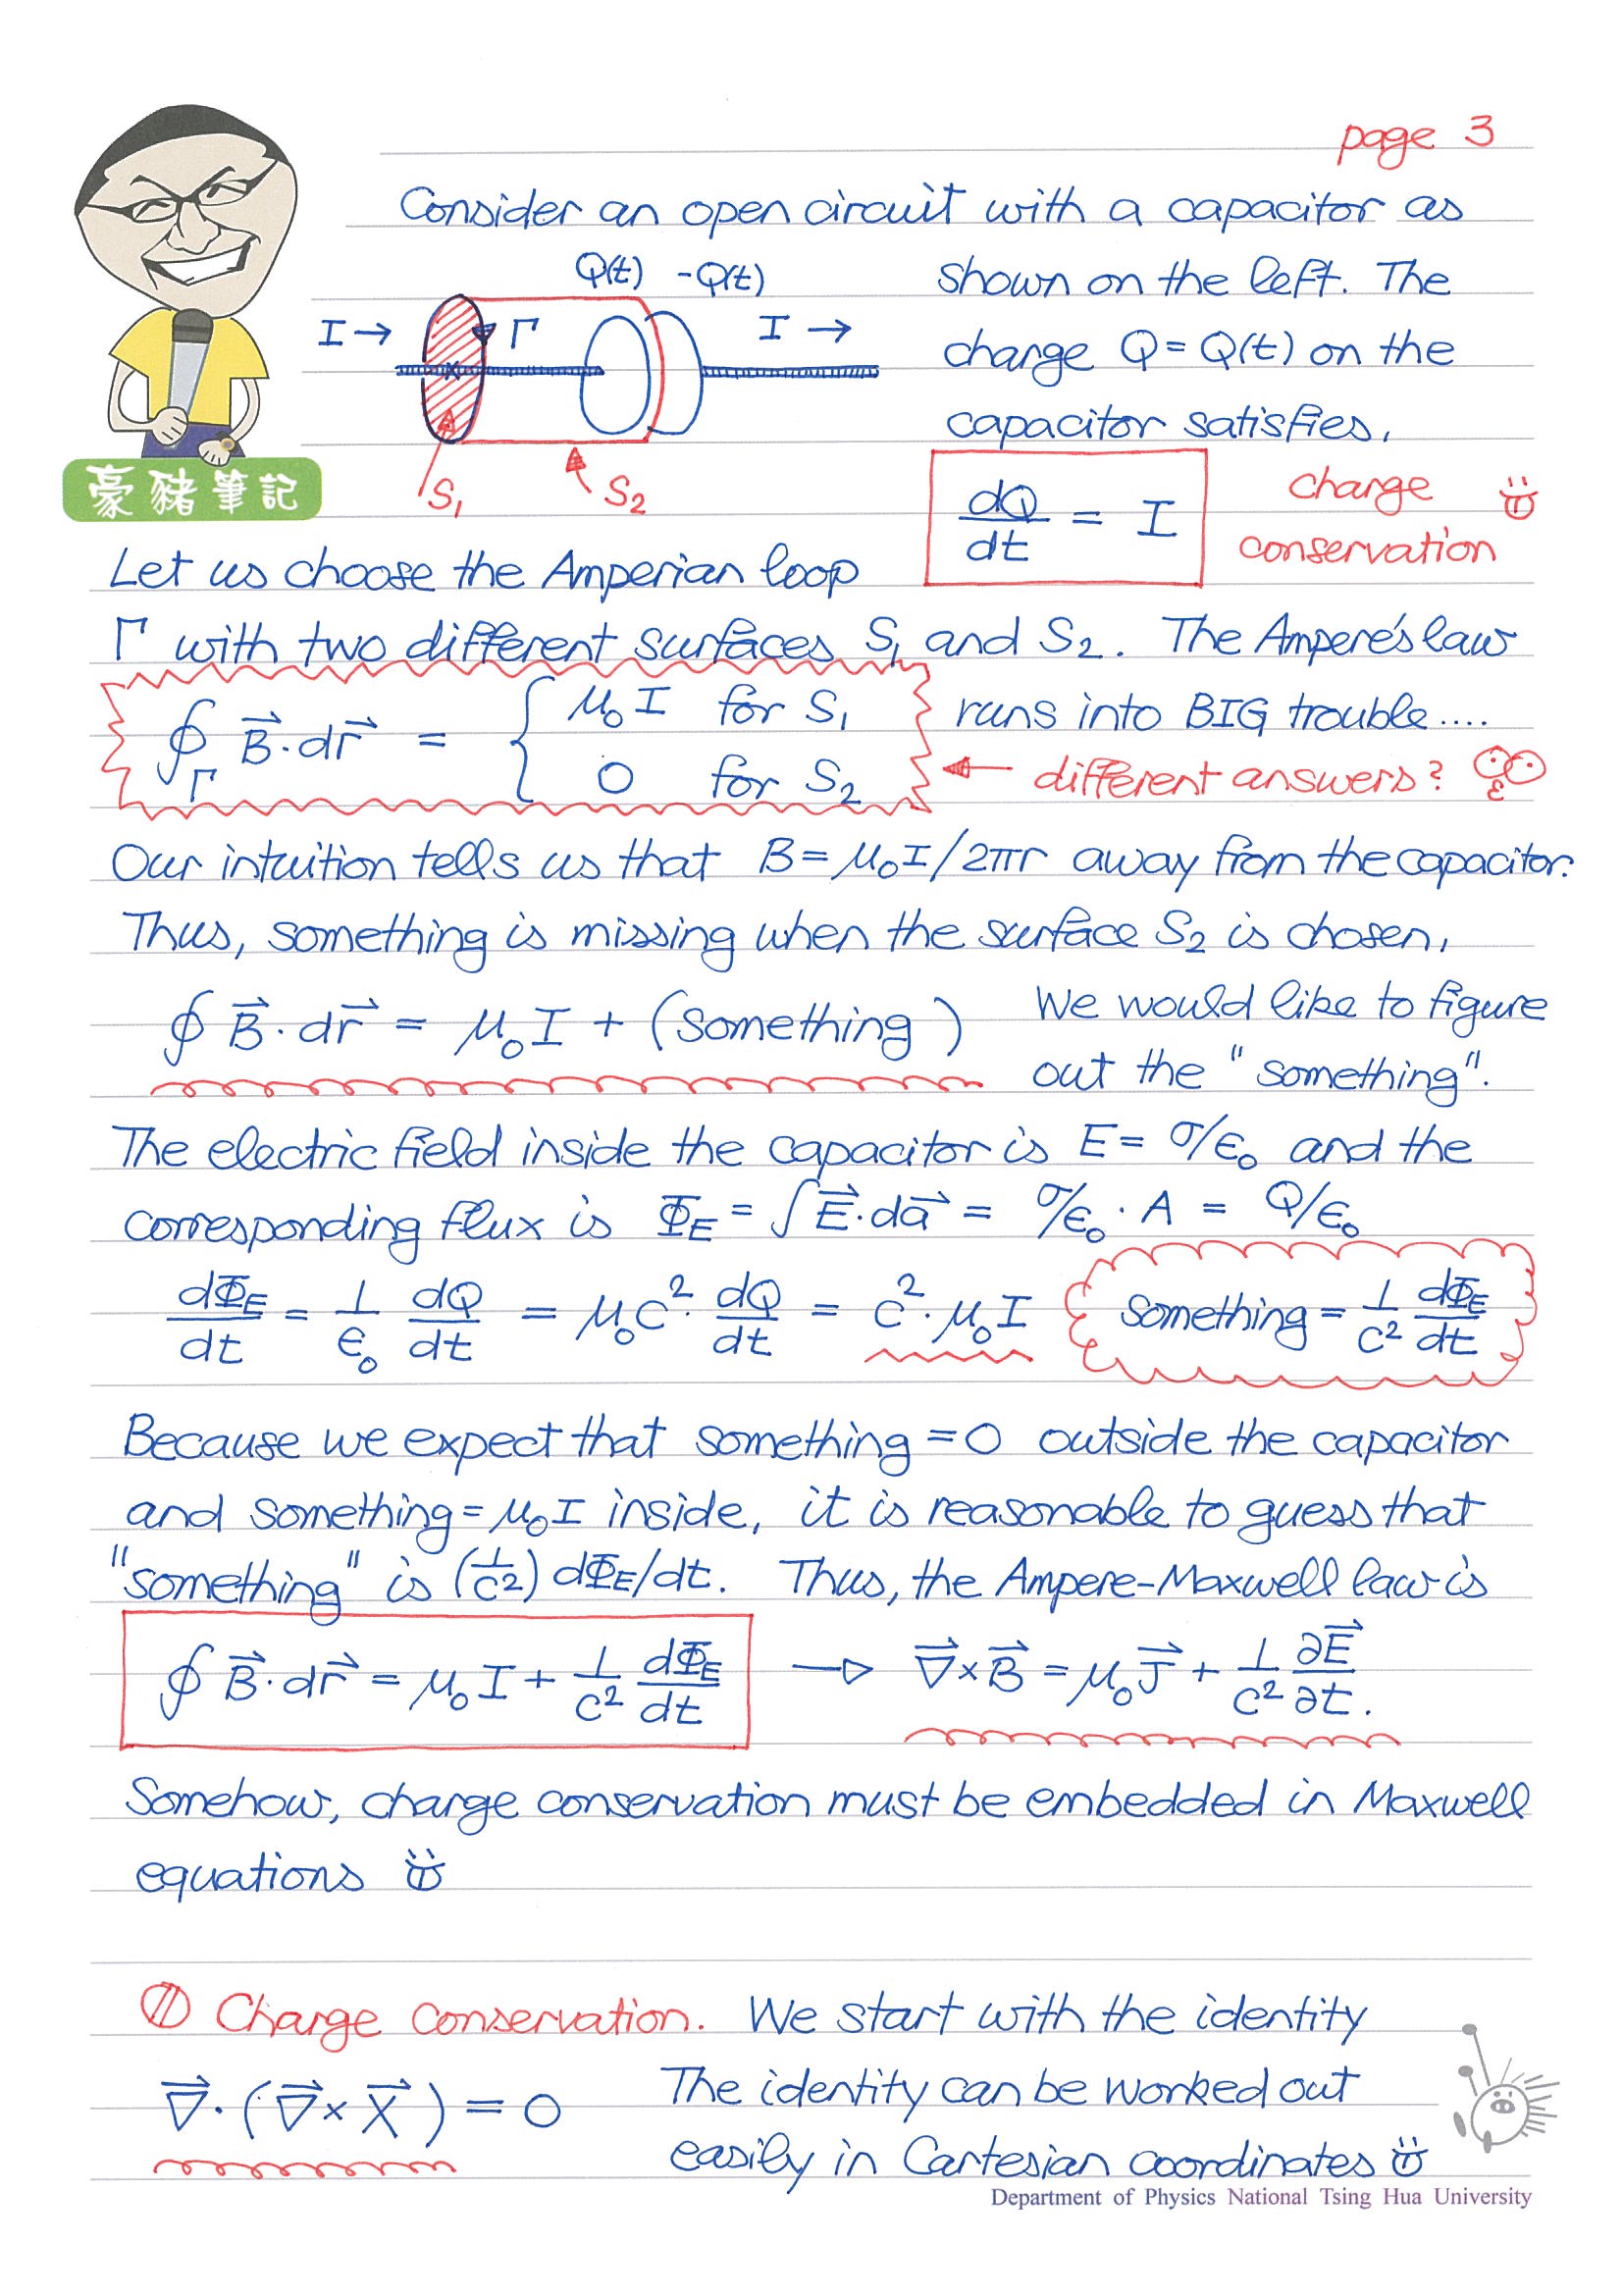 page 3
Consider an open circuit with a capacitor as
Q(t) -Q(t)
shown on the left. The
I → Γ I →
change Q = Q(t) on the
capacitor satisfies,
豪豬筆記
S₁ S₂
dQ/dt = I
charge
conservation
Let us choose the Amperian loop
Γ with two different surfaces S₁ and S₂. The Ampere's law
∮_Γ B⃗·dr⃗ = { μ₀I for S₁
0 for S₂
runs into BIG trouble....
← different answers?
Our intuition tells us that B = μ₀I/2πr away from the capacitor.
Thus, something is missing when the surface S₂ is chosen,
∮ B⃗·dr⃗ = μ₀I + (something)
We would like to figure
out the "something".
The electric field inside the capacitor is E = σ/ε₀ and the
corresponding flux is Φ_E = ∫E⃗·da⃗ = σ/ε₀ · A = Q/ε₀
dΦ_E/dt = 1/ε₀ dQ/dt = μ₀c²· dQ/dt = c²·μ₀I
something = 1/c² dΦ_E/dt
Because we expect that something = 0 outside the capacitor
and something = μ₀I inside, it is reasonable to guess that
"something" is (1/c²) dΦ_E/dt. Thus, the Ampere-Maxwell law is
∮ B⃗·dr⃗ = μ₀I + 1/c² dΦ_E/dt → ∇⃗×B⃗ = μ₀J⃗ + 1/c² ∂E⃗/∂t.
Somehow, charge conservation must be embedded in Maxwell
equations
Charge conservation. We start with the identity
∇⃗·(∇⃗×X⃗) = 0
The identity can be worked out
easily in Cartesian coordinates
Department of Physics National Tsing Hua University